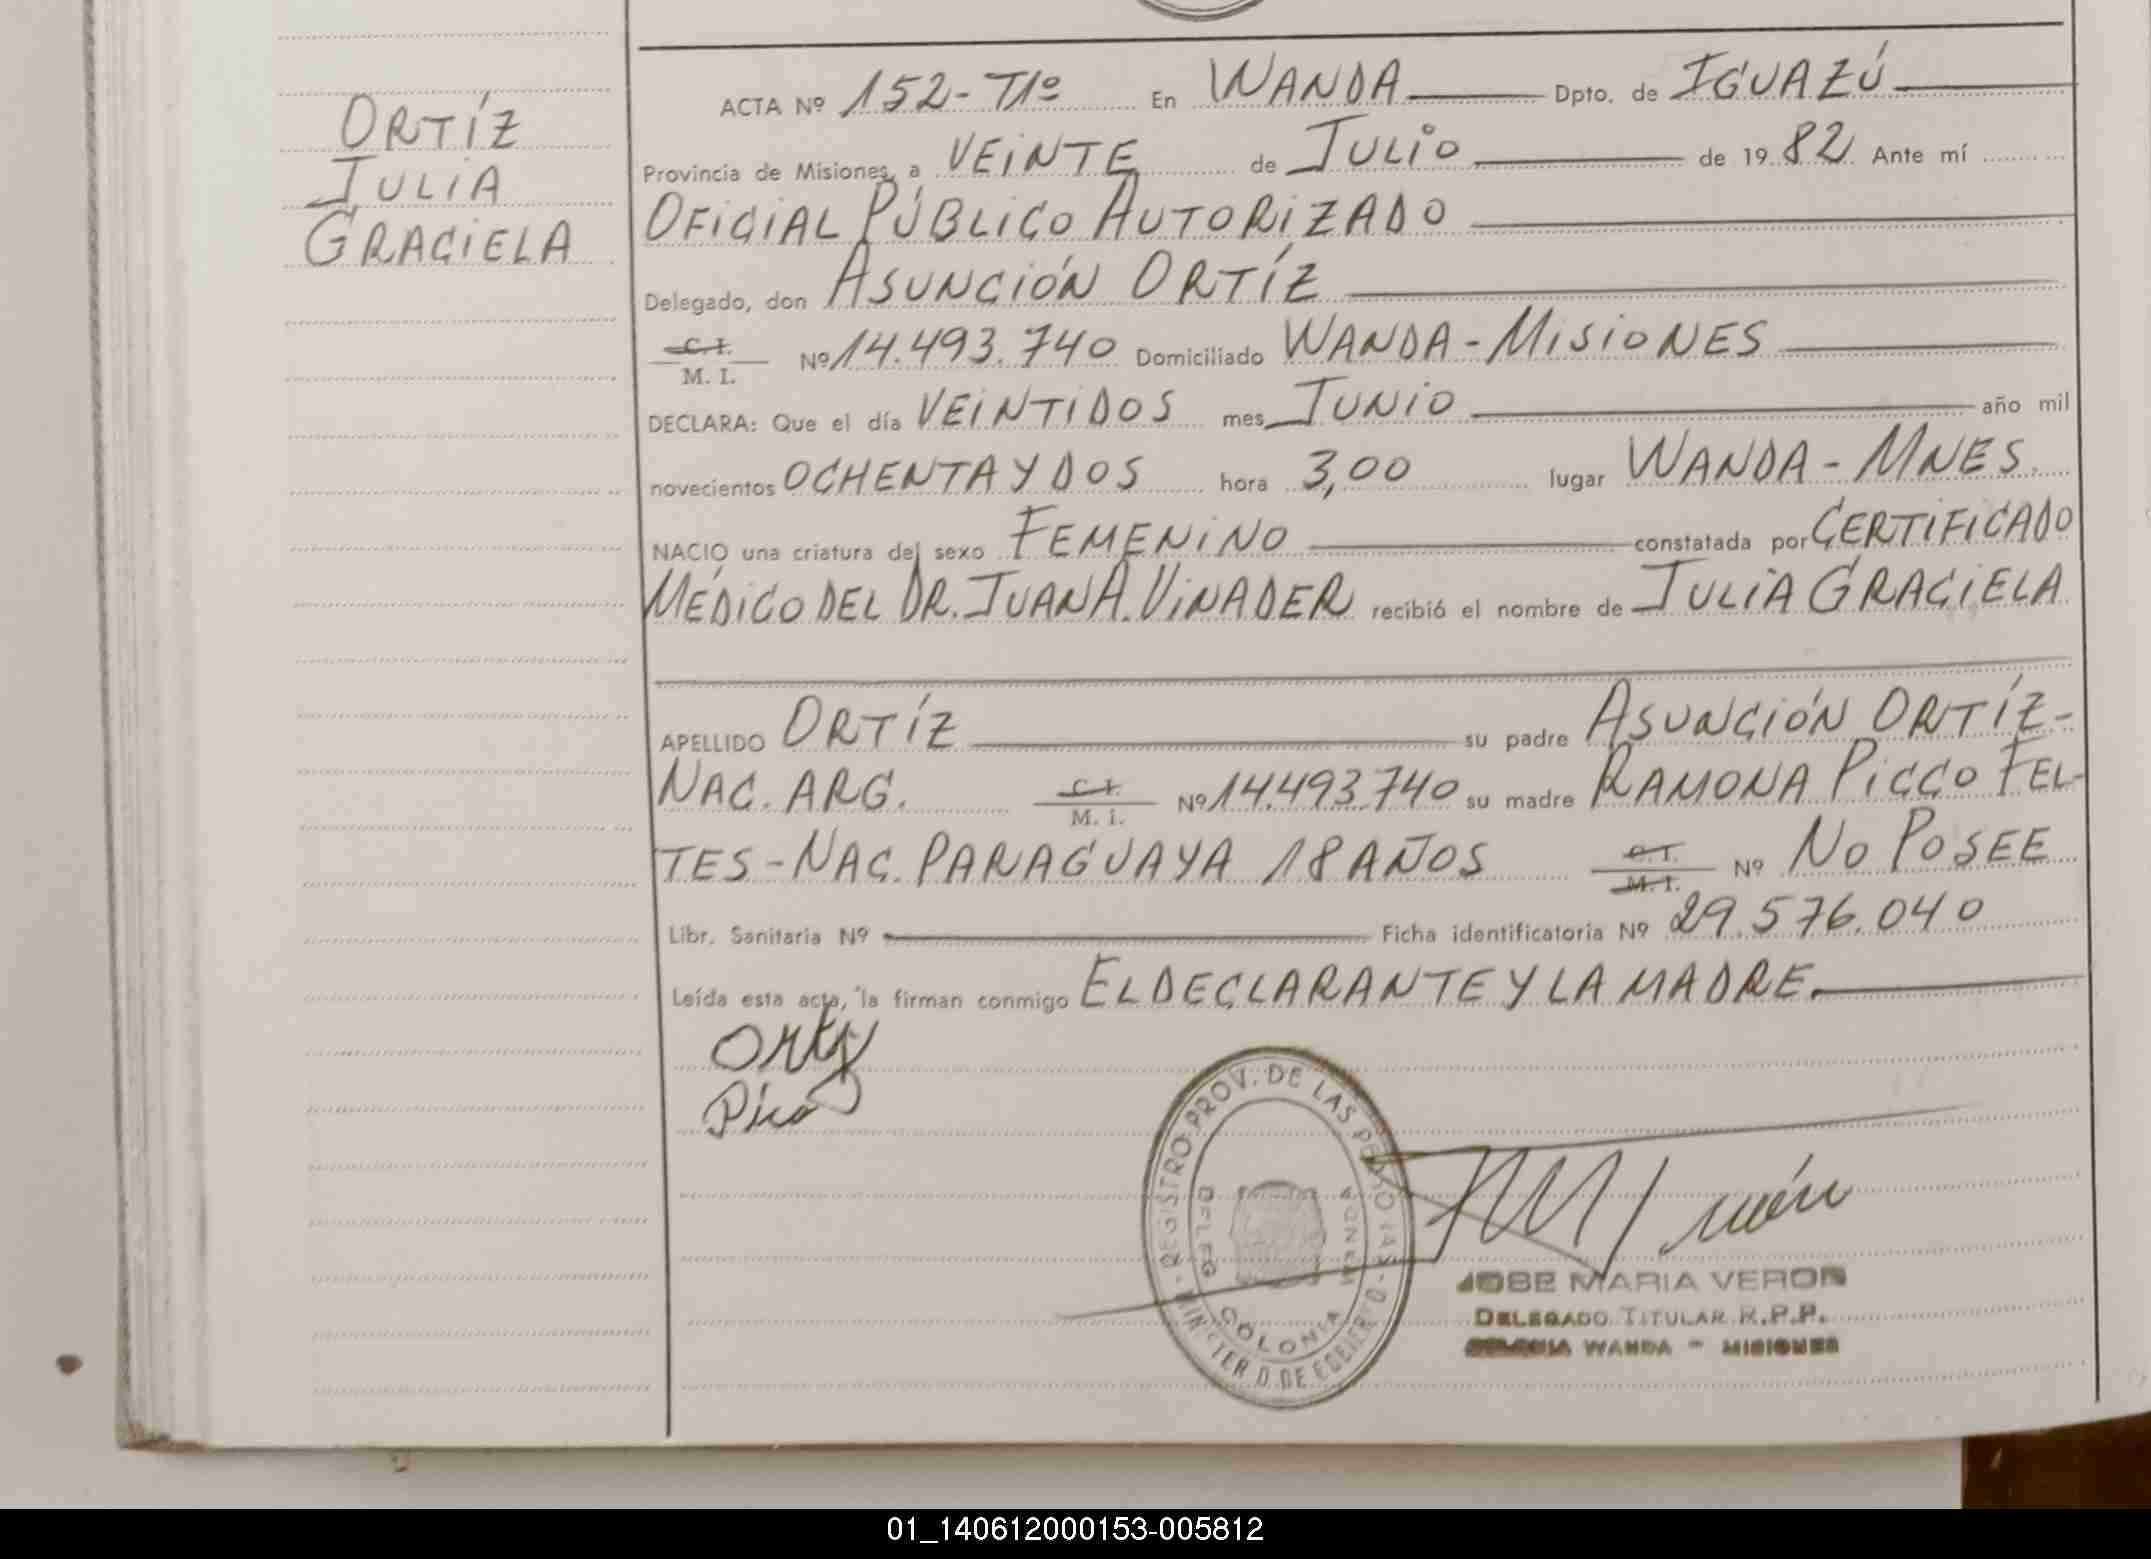 ORTÍZ
JULIA
GRACIELA
ACTA Nº 152-T1º En WANDA Dpto. de IGUAZÚ
Provincia de Misiones, a VEINTE de JULIO de 1982 Ante mí
OFICIAL PÚBLICO AUTORIZADO
Delegado, don ASUNCIÓN ORTÍZ
C.I. / M. I. Nº 14.493.740 Domiciliado WANDA-MISIONES
DECLARA: Que el día VEINTIDOS mes JUNIO año mil
novecientos OCHENTA Y DOS hora 3,00 lugar WANDA-MNES.
NACIO una criatura del sexo FEMENINO constatada por CERTIFICADO
MÉDICO DEL DR. JUAN A. VINADER recibió el nombre de JULIA GRACIELA
APELLIDO ORTÍZ su padre ASUNCIÓN ORTÍZ-
NAC. ARG. C.I. / M. i. Nº 14.493.740 su madre RAMONA PICCO FEL-
TES-NAC. PARAGUAYA 18 AÑOS C.I. / M.I. Nº NO POSEE
Libr. Sanitaria Nº Ficha identificatoria Nº 29.576.040
Leída esta acta, la firman conmigo EL DECLARANTE Y LA MADRE.
Ortiz
Pico
REGISTRO PROV. DE LAS PERSONAS
DELEG
COLONIA
JOSE MARIA VERON
DELEGADO TITULAR R.P.P.
COLONIA WANDA - MISIONES
01_140612000153-005812